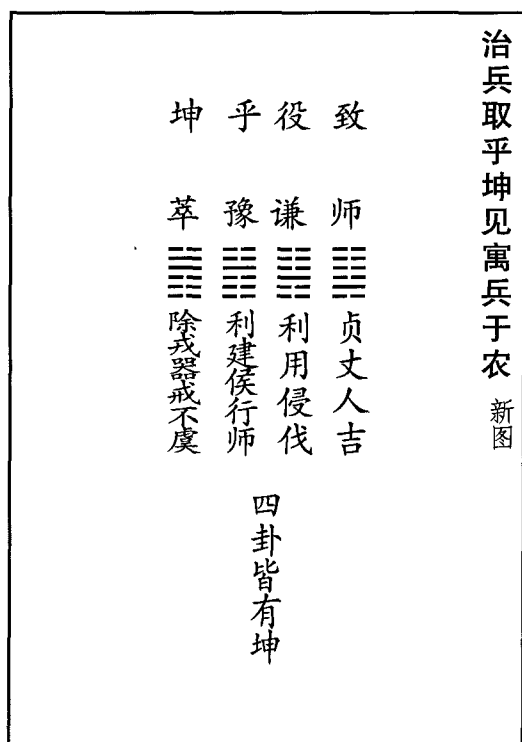 治兵取乎坤见寓兵于农 新图
致役乎坤
师
贞丈人吉
谦
利用侵伐
豫
利建侯行师
萃
除戎器戒不虞
四卦皆有坤